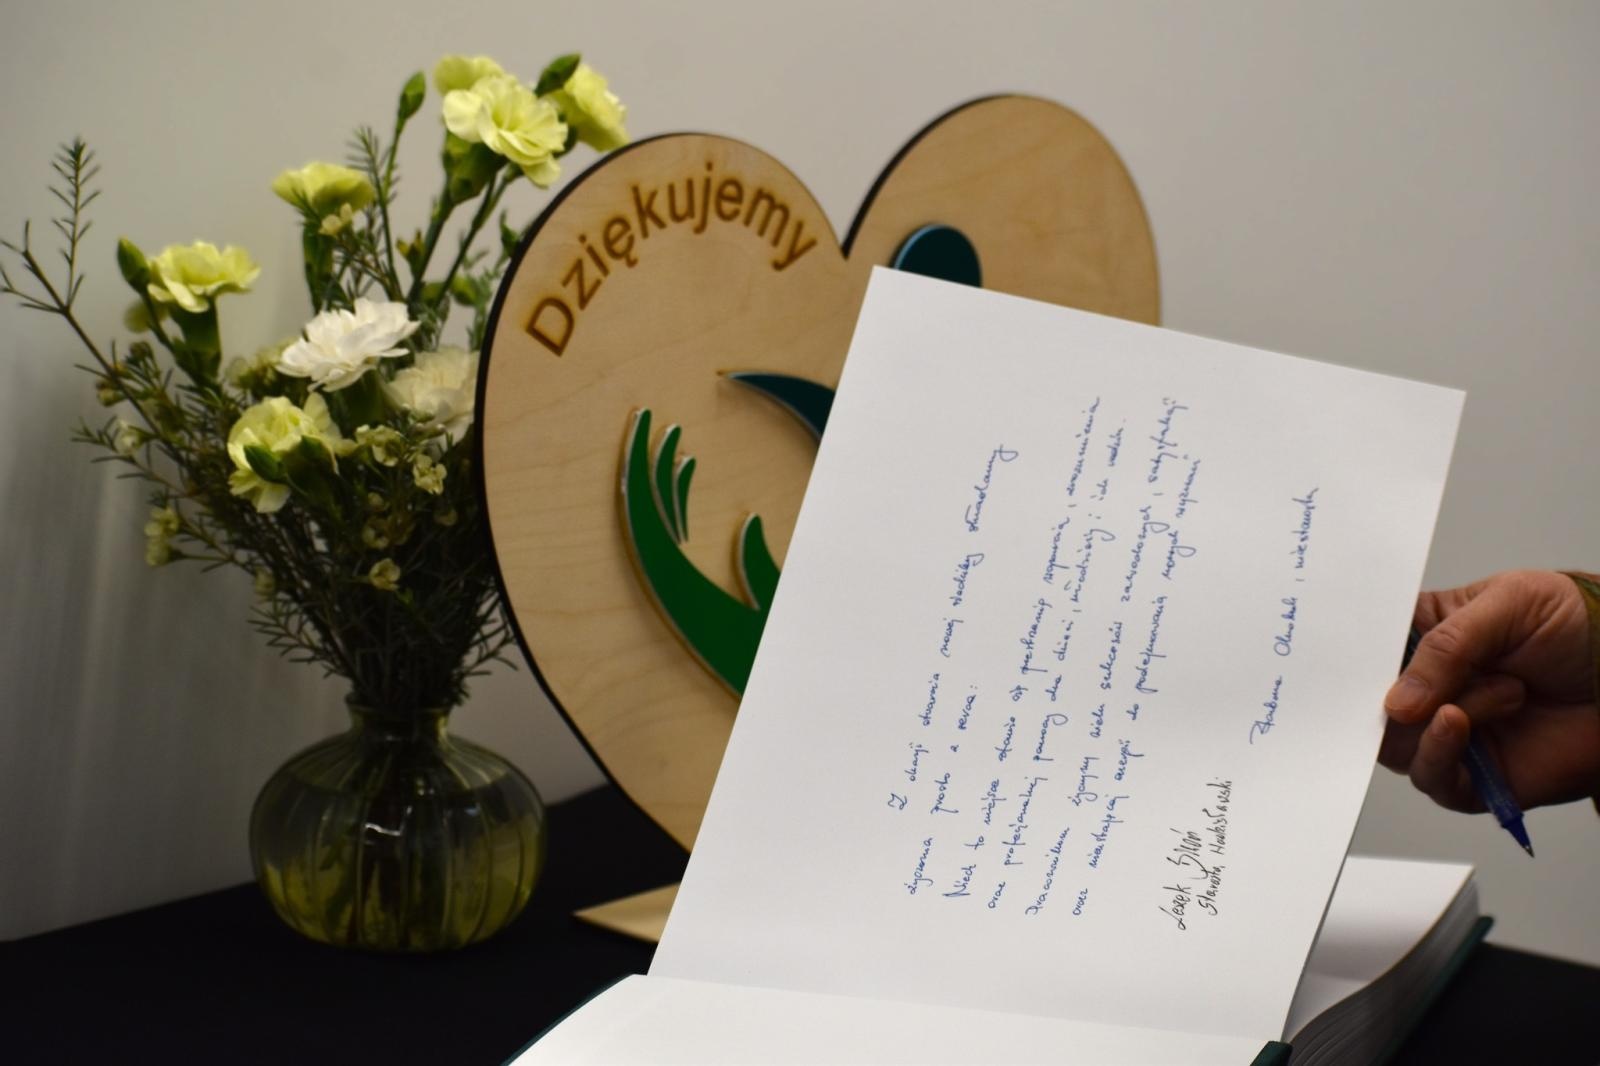 Dziękujemy
Z okazji otwarcia nowej siedziby składamy
życzenia prosto z serca:
Niech to miejsce stanie się przestrzenią wsparcia, zrozumienia
oraz profesjonalnej pomocy dla dzieci, młodzieży i ich rodzin.
Pracownikom życzymy wielu sukcesów zawodowych i satysfakcji
oraz niesłabnącej energii do podejmowania nowych wyzwań
i mieszkańcy
Leszek
Starosta